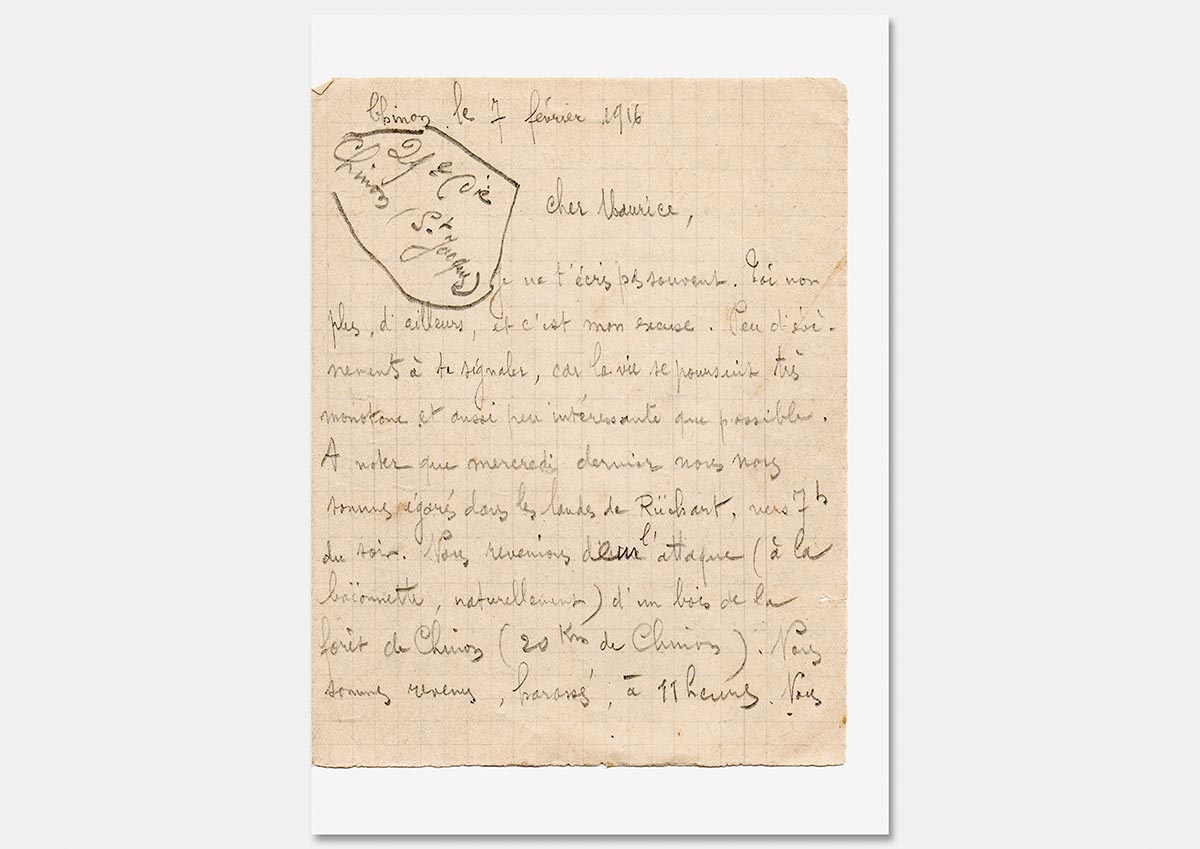 Chinon le 7 février 1916
25e Cie
Chinon
(St Jacques)
Cher Maurice,
Je ne t'écris pas souvent. Toi non
plus, d'ailleurs, et c'est mon excuse. Peu d'évè-
nements à te signaler, car la vie se poursuit très
monotone et aussi peu intéressante que possible.
A noter que mercredi dernier nous nous
sommes égarés dans les landes de Rüchart, vers 7h
du soir. Nous revenions de l'attaque (à la
baïonnette, naturellement) d'un bois de la
forêt de Chinon (20 Km de Chinon). Nous
sommes revenus, harassé, à 11 heures. Nous